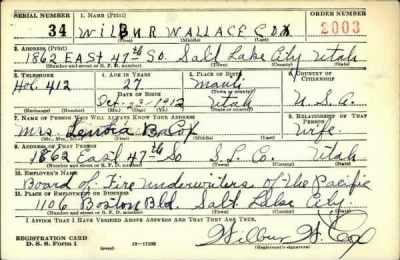 SERIAL NUMBER 1. NAME (Print) ORDER NUMBER
34 WILBUR WALLACE COX 2003
(First) (Middle) (Last)
2. ADDRESS (Print)
1862 EAST 47th So. Salt Lake City Utah
(Number and street or R. F. D. number) (Town) (County) (State)
3. TELEPHONE 4. AGE IN YEARS 5. PLACE OF BIRTH 6. COUNTRY OF CITIZENSHIP
412 27 Manti
DATE OF BIRTH (Town or county)
Oct. 23 1912 Utah U.S.A.
(Exchange) (Number) (Mo.) (Day) (Yr.) (State or country)
7. NAME OF PERSON WHO WILL ALWAYS KNOW YOUR ADDRESS 8. RELATIONSHIP OF THAT PERSON
Mrs. B. Cox Wife.
(Mr., Mrs., Miss) (First) (Middle) (Last)
9. ADDRESS OF THAT PERSON
1862 East 47th So S.L. Co. Utah
(Number and street or R. F. D. number) (Town) (County) (State)
10. EMPLOYER'S NAME
Board of Fire Underwriters of The Pacific
11. PLACE OF EMPLOYMENT OR BUSINESS
1106 Boston Bld. Salt Lake City.
(Number and street or R. F. D. number) (Town) (County) (State)
I AFFIRM THAT I HAVE VERIFIED ABOVE ANSWERS AND THAT THEY ARE TRUE.
REGISTRATION CARD
D. S. S. Form 1 Wilbur W. Cox
(Registrant's signature)